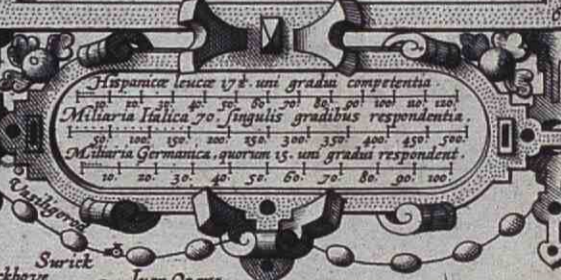 Hispanicæ leucæ 17½. uni gradui competentia.
10. 20. 30. 40. 50. 60. 70. 80. 90. 100. 110. 120.
Miliaria Italica 70. singulis gradibus respondentia.
50. 100. 150. 200. 250. 300. 350. 400. 450. 500.
Miliaria Germanica, quorum 15. uni gradui respondent.
10. 20. 30. 40. 50. 60. 70. 80. 90. 100.
Vasiligorod
Surick